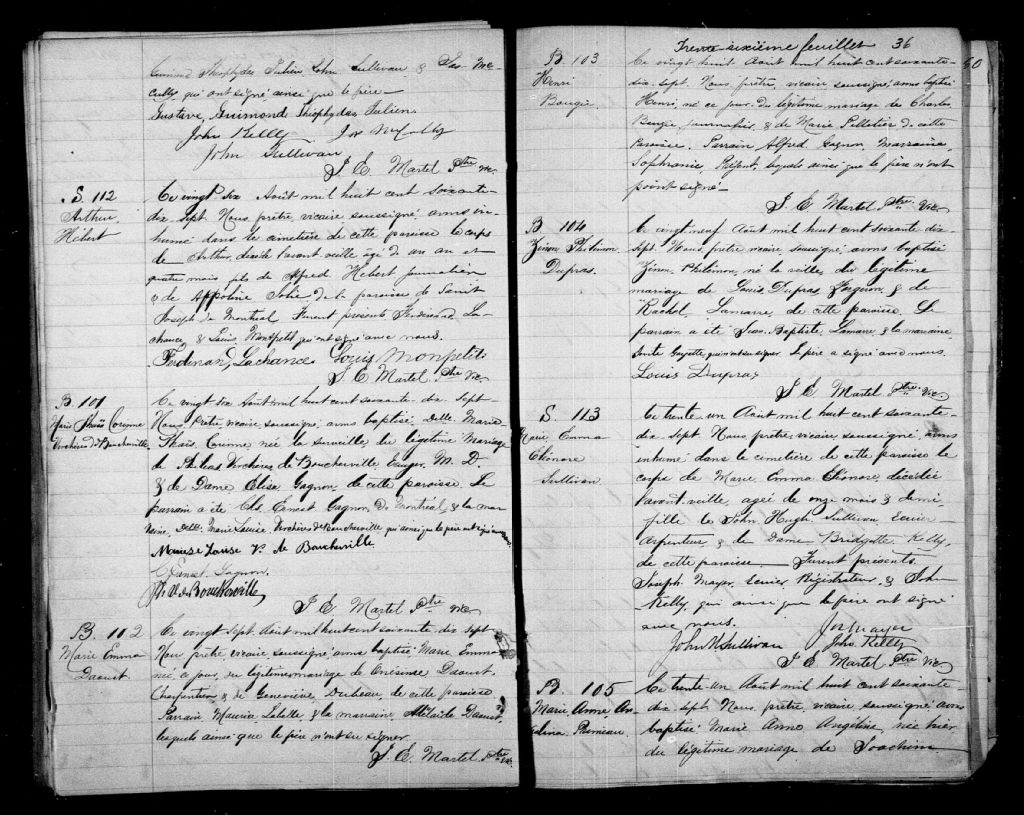 Guimond Théophydes Julien John Sullivan & Jas Mc-
Cully, qui ont signé, ainsi que le père
Gustave Guimond Théophydas Julien
John Kelly Jos McCully
John Sullivan
J E Martel Ptre Vic
S. 112
Arthur
Hébert
Ce vingt six Août mil huit cent soixante-
dix sept Nous prêtre, vicaire soussigné avons in-
humé dans le cimetière de cette paroisse le corps
de Arthur, décédé l'avant veille âgé d'un an et
quatre mois fils de Alfred Hébert journalier
& de Appoline Jolie de la paroisse de Saint
Joseph de Montréal Furent présents Ferdinand La-
chance & Louis Montpetit qui ont signé avec nous.
Ferdinand Lachance Louis Monpetit
J. E Martel Ptre Vic
B. 101
Marie Thaïs Corinne
Verchères de Boucherville
Ce vingt six Août mil huit cent soixante-dix sept-
Nous, Prêtre, vicaire soussigné, avons baptisé Delle Marie
Thaïs Corinne née la surveille du légitime Mariage
de Philéas Verchères de Boucherville, Ecuyer, M. D.
& de Dame Elisa Gagnon, de cette paroisse. Le
parrain a été Chs Ernest Gagnon, de Montréal & la mar-
raine, Delle Marie Louise Verchères de Boucherville qui ainsi que le père ont signé avec nous
Marie Louise V. de Boucherville
C. Ernest Gagnon
Ph V. de Boucherville
J E Martel Ptre Vic
B. 102
Marie Emma
Daoust
Ce vingt sept Août mil huit cent soixante dix sept
Nous prêtre vicaire soussigné avons baptisé Marie Emma
née ce jour, du légitime mariage de Onésime Daoust
Charpentier & de Geneviève Dubeau, de cette paroisse
Parrain Maurice Labelle & la marraine Adélaïde Daoust,
lesquels ainsi que le père n'ont su signer
J. E. Martel Ptre Vic.
Trente-sixième feuillet 36
B 103
Henri
Bougie
Ce vingt huit Août mil huit cent soixante-
dix sept. Nous, prêtre, vicaire soussigné avons baptisé
Henri, né ce jour du légitime mariage de Charles
Bougie journalier, & de Marie Pelletier de cette
Paroisse. Parrain Alfred Gagnon, Marraine,
Sophranie, lesquels ainsi que le père n'ont
point signé
J. E Martel Ptre Vic
B 104
Zénon Philémon
Dupras.
Ce vingt neuf Août mil huit cent soixante dix
sept. Nous prêtre vicaire soussigné avons baptisé
Zénon Philémon, né la veille, du légitime
mariage de Louis Dupras forgeron, & de
Rachel Lamarre, de cette paroisse. Le
parrain a été Jean-Baptiste Lamarre & la marraine
Gayette, qui n'ont su signer. Le père a signé avec nous
Louis Dupras
J E Martel Ptre Vic
S. 113
Marie Emma
Eléonore
Sullivan
Ce trente un Août mil huit cent soixante-
dix sept Nous prêtre, vicaire, soussigné, avons
inhumé dans le cimetière de cette paroisse le
corps de Marie Emma Eléonore, décédée
l'avant veille, agée de onze mois & demi
fille de John Hugh Sullivan Ecuier
Arpenteur, & de Dame Bridgette Kelly,
de cette paroisse — Furent présents.
Joseph Mayer, Ecuier Régistrateur, & John
Kelly qui ainsi que le père ont signé
avec nous. Jos Mayer
John H Sullivan John Kelly
J E Martel Ptre Vic
B. 105
Marie Anne, An-
gelina Primeau
Ce trente-un Août mil huit cent soixante-
dix sept. Nous, prêtre, vicaire soussigné avons
baptisé Marie Anne Angelina, née hier
du légitime mariage de Joachim